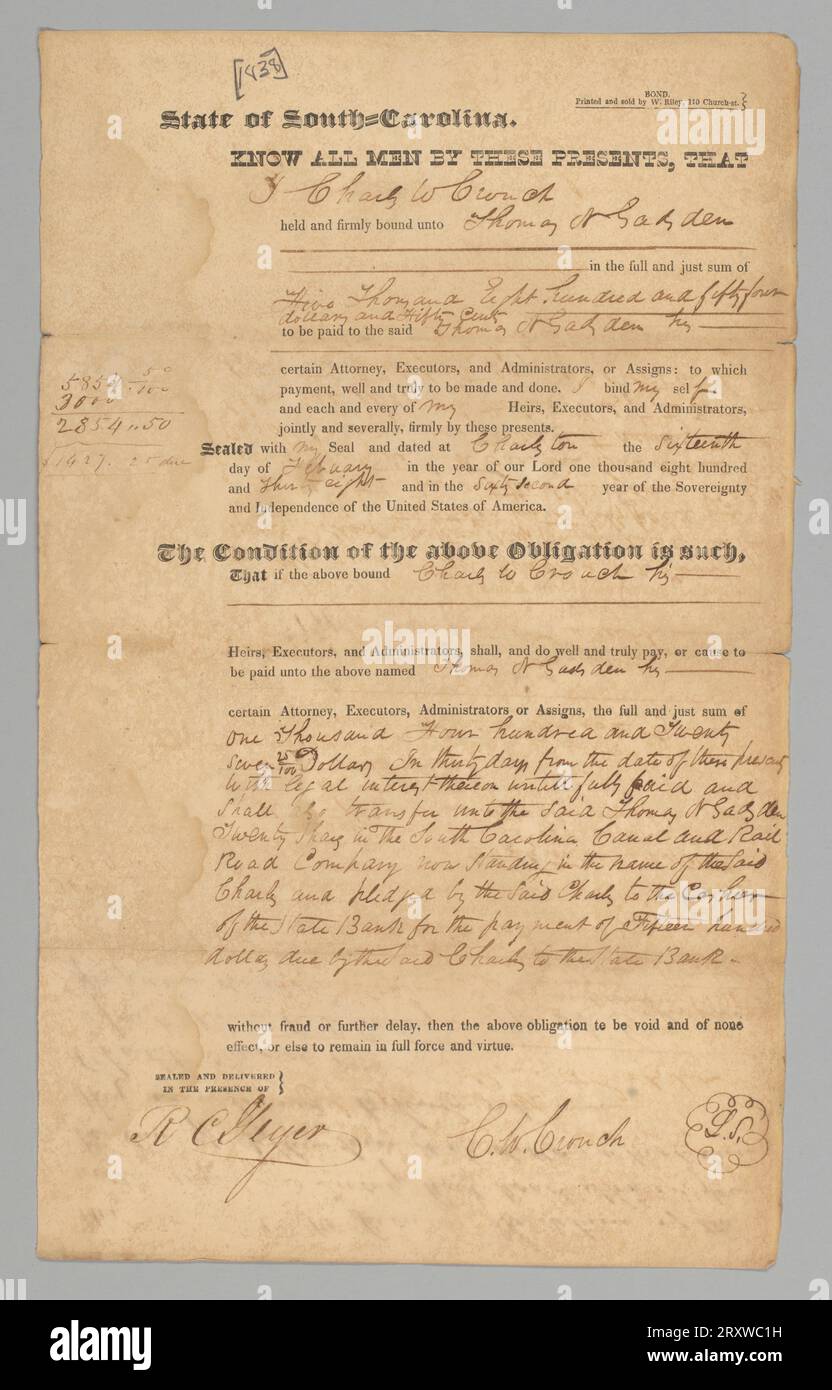 [1838]
BOND.
Printed and sold by W. Riley, 110 Church-st.
State of South-Carolina.
KNOW ALL MEN BY THESE PRESENTS, THAT
I Charles W Crouch
held and firmly bound unto Thomas N Gadsden
in the full and just sum of
Five Thousand Eight hundred and fifty four
dollars and Fifty Cents
to be paid to the said Thomas N Gadsden his
certain Attorney, Executors, and Administrators, or Assigns: to which
payment, well and truly to be made and done. I bind my self
and each and every of my Heirs, Executors, and Administrators,
jointly and severally, firmly by these presents.
5854 50/100
3000
2854 .. 50
$1427. 25 due
Sealed with my Seal and dated at Charleston the Sixteenth
day of February in the year of our Lord one thousand eight hundred
and Thirty eight and in the Sixty Second year of the Sovereignty
and Independence of the United States of America.
The Condition of the above Obligation is such,
That if the above bound Charles W Crouch his
Heirs, Executors, and Administrators, shall, and do well and truly pay, or cause to
be paid unto the above named Thomas N Gadsden his
certain Attorney, Executors, Administrators or Assigns, the full and just sum of
One Thousand Four hundred and Twenty
Seven 25/100 Dollars In thirty days from the date of these presents
with legal interest thereon untill fully paid and
Shall also transfer unto the Said Thomas N Gadsden
Twenty Shares in the South Carolina Canal and Rail
Road Company now Standing in the name of the Said
Charles and pledged by the Said Charles to the Cashier
of the State Bank for the payment of Fifteen hundred
dollars due by the Said Charles to the State Bank.
without fraud or further delay, then the above obligation to be void and of none
effect, or else to remain in full force and virtue.
SEALED AND DELIVERED
IN THE PRESENCE OF
R C Geyer
C. W. Crouch
L.S.
alamy
alamy
Image ID: 2RXWC1H
www.alamy.com